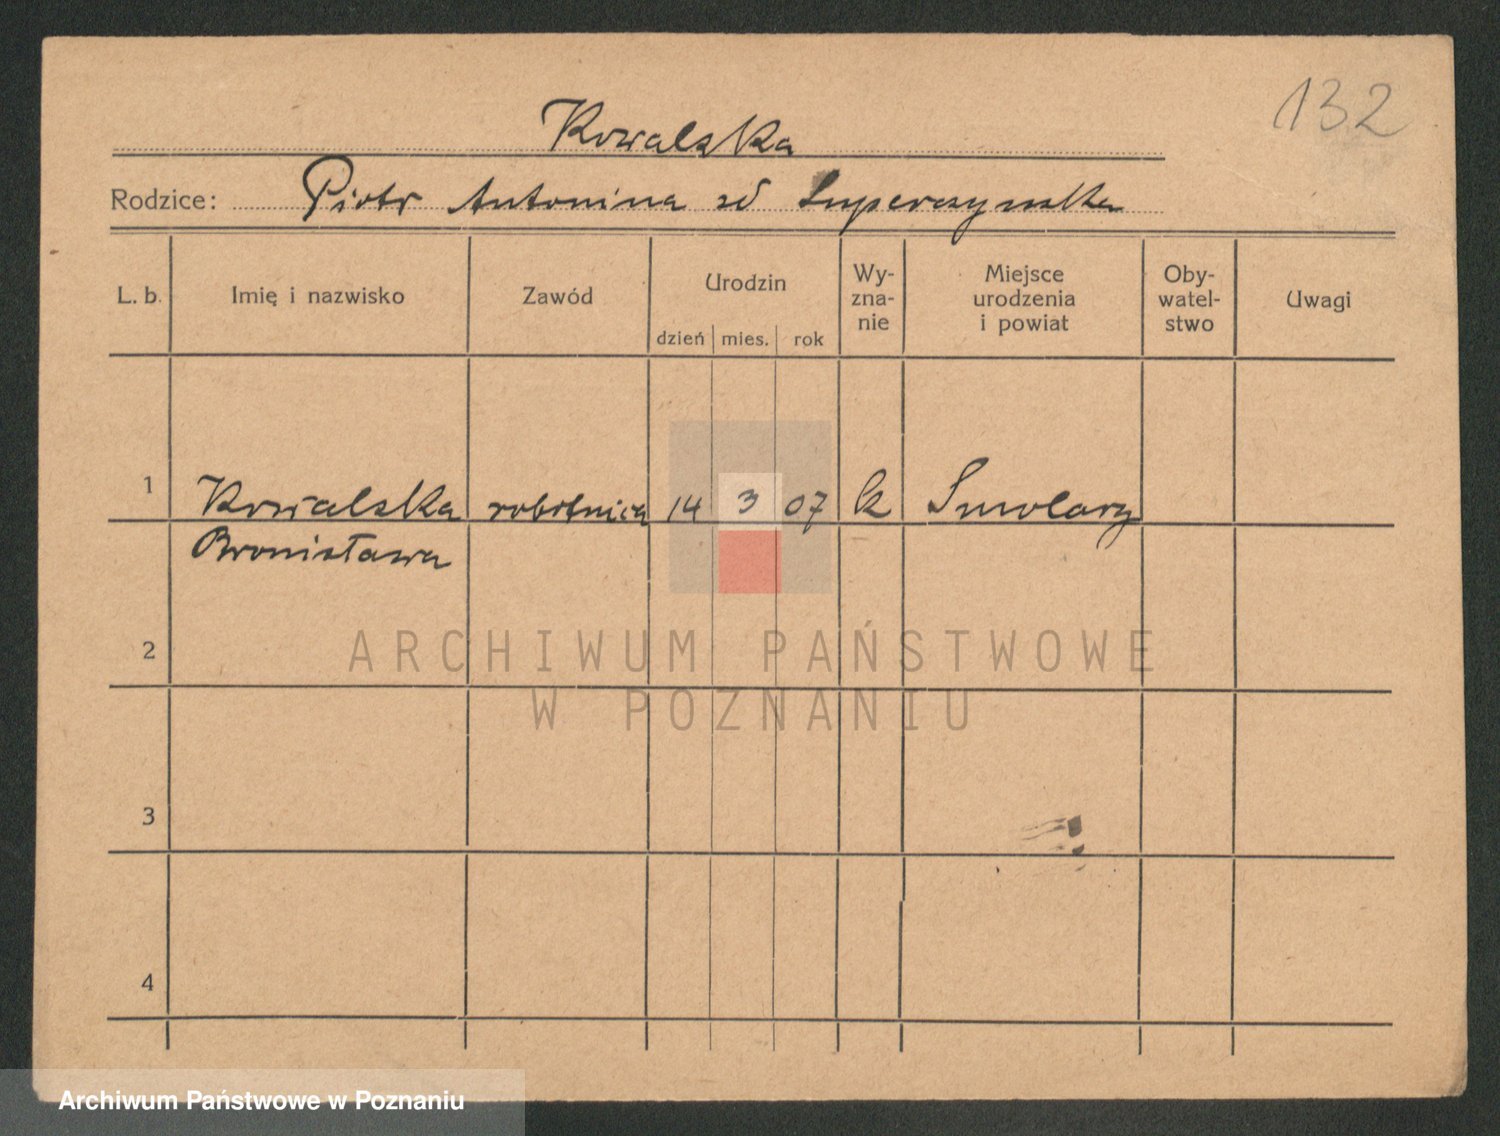 132
Kowalska
Rodzice: Piotr Antonina zd Superczynska
L. b. Imię i nazwisko Zawód Urodzin dzień mies. rok Wy-zna-nie Miejsce urodzenia i powiat Oby-watel-stwo Uwagi
1 Kowalska robotnica 14 3 07 k Smolary
Bronisława
2
ARCHIWUM PAŃSTWOWE
W POZNANIU
3
4
Archiwum Państwowe w Poznaniu